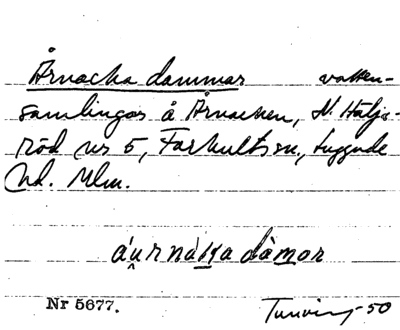 Årnacka dammar vatten-
samlingar å Årnacken, N. Häljs-
röd nr 5, Farhults sn., Luggude
hd. Mlm.
áu̯rnáka dàmor
Nr 5677. Tunving-50